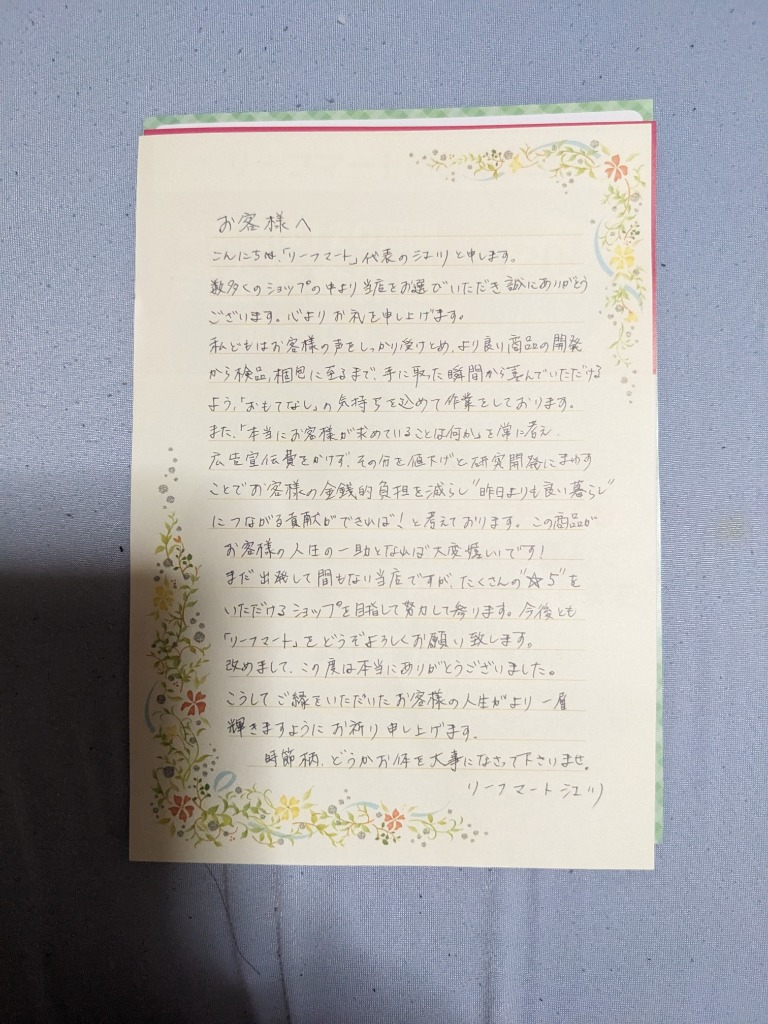 お客様へ
こんにちは、「リーフマート」代表の江川と申します。
数多くのショップの中より当店をお選びいただき誠にありがとう
ございます。心よりお礼を申し上げます。
私どもはお客様の声をしっかり受けとめ、より良い商品の開発
から検品、梱包に至るまで、手に取った瞬間から喜んでいただける
よう、「おもてなし」の気持ちを込めて作業をしております。
また、「本当にお客様が求めていることは何か」を常に考え、
広告宣伝費をかけず、その分を値下げと研究開発にまわす
ことでお客様の金銭的負担を減らし"昨日よりも良い暮らし"
につながる貢献ができれば!と考えております。この商品が
お客様の人生の一助となれば大変嬉しいです!
まだ出発して間もない当店ですが、たくさんの"☆5"を
いただけるショップを目指して努力して参ります。今後とも
「リーフマート」をどうぞよろしくお願い致します。
改めまして、この度は本当にありがとうございました。
こうしてご縁をいただいたお客様の人生がより一層
輝きますようにお祈り申し上げます。
時節柄、どうかお体を大事になさって下さいませ。
リーフマート江川